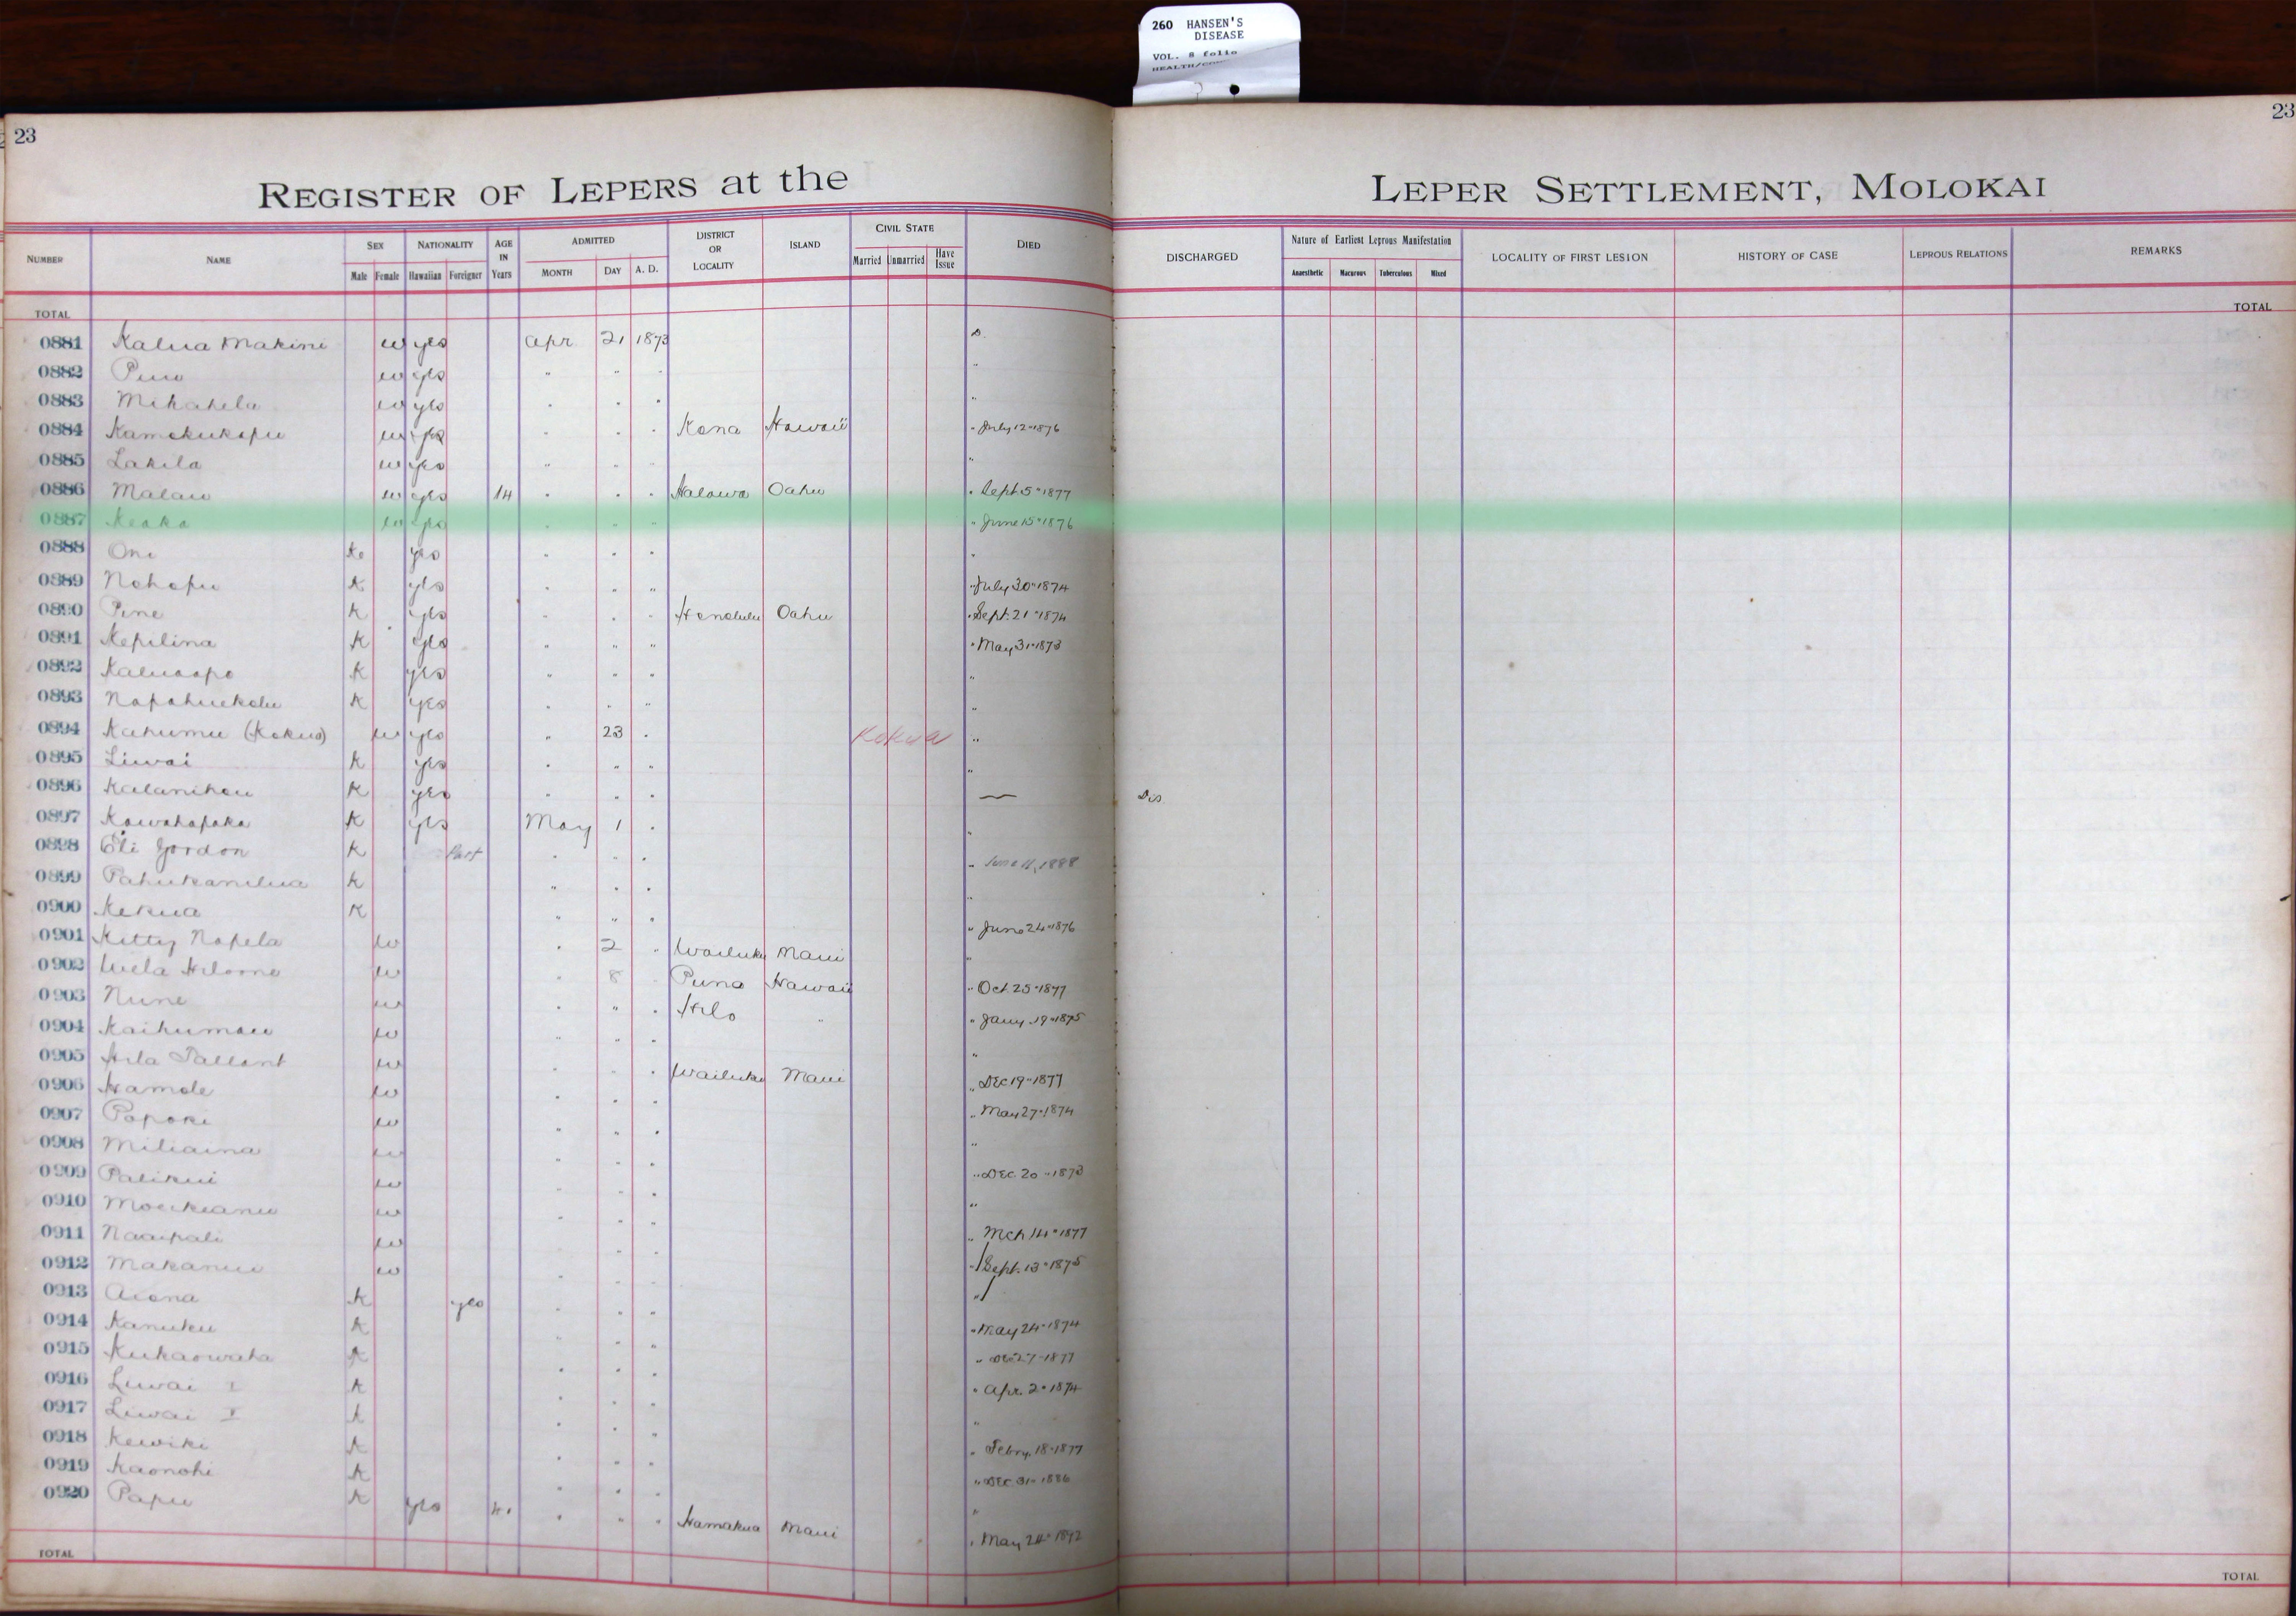 260 HANSEN'S
DISEASE
VOL. 8 folio
23
23
REGISTER OF LEPERS at the LEPER SETTLEMENT, MOLOKAI
NUMBER NAME SEX NATIONALITY AGE IN Years ADMITTED DISTRICT OR LOCALITY ISLAND CIVIL STATE DIED DISCHARGED Nature of Earliest Leprous Manifestation LOCALITY OF FIRST LESION HISTORY OF CASE LEPROUS RELATIONS REMARKS
Male Female Hawaiian Foreigner MONTH DAY A. D. Married Unmarried Have Issue Anaesthetic Macurous Tuberculous Mixed
TOTAL TOTAL
0881 Kalua Makini w yes Apr 21 1873 D.
0882 w yes " " " "
0883 Mikahela w yes " " " "
0884 Kamokukapu w yes " " " Kona Hawaii " July 12 " 1876
0885 Lakila w yes " " " "
0886 Malau w yes 14 " " " Halawa Oahu " Sept. 5 " 1877
0887 Keaka w yes " " " " June 15 " 1876
0888 Oni K yes " " " "
0889 Nohopu K yes " " " " July 30 " 1874
0890 Pine K yes " " " Honolulu Oahu " Sept. 21 " 1874
0891 Kepilina K yes " " " " May 31 " 1873
0892 K yes " " " "
0893 Napahuekolu K yes " " " "
0894 Kahumu (Kokua) w yes " 23 " Kokua "
0895 Liwai K yes " " " "
0896 Kalanihou K yes " " " — Dis
0897 Kawahapaka K yes May 1 " "
0898 Eli Gordon K Part " " " " June 11, 1888
0899 Pahukanilua K " " " "
0900 Kekua K " " " " June 24 " 1876
0901 Kitty Napela w " 2 " Wailuku Maui "
0902 w " 8 Puna Hawaii " Oct. 25 " 1877
0903 Nune w " " " Hilo " " Jany. 19 " 1875
0904 Kaihumau w " " " "
0905 Hila Tallant w " " " Wailuku Maui " Dec 19 " 1877
0906 Hamole w " " " " May 27 " 1874
0907 Papoki w " " " "
0908 Miliaina w " " " " Dec. 20 " 1873
0909 Palikui w " " " "
0910 Moeikeanu w " " " " Mch 14 " 1877
0911 Naaipali w " " " " Sept. 13 " 1875
0912 Makanui w " " " "
0913 Aiona K yes " " " " May 24 " 1874
0914 Kanuku K " " " 27 " 1877
0915 Kukaowaha K " " " " Apr. 2 " 1874
0916 Liwai K " " " "
0917 Liwai K " " " " Febry. 18 " 1877
0918 Kewiki K " " " " Dec. 31 " 1886
0919 Kaonohi K " " " "
0920 Papu K yes " " " Hamakua Maui " May 24 " 1892
TOTAL TOTAL